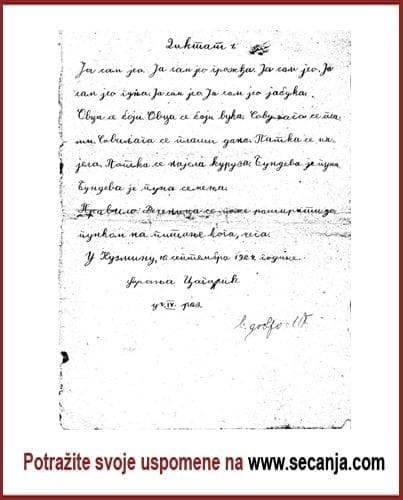 Диктат 1.
Ја сам јео. Ја сам јео грожђа. Ја сам јео. Ја
сам јео гужа. Ја сам јео. Ја сам јео јабука.
Овца се боји. Овца се боји вука. Совуљага се пла
ши. Совуљага се плаши дана. Патка се на
јела. Патка се најела куруза. Бундева је пуна
Бундева је пуна семена.
Правило: Реченица се може раширити за
пунком на питање кога, чега.
У Кузмину, 10 септембра 1902 године.
Фрања Цагарић
уч. IV. раз.
в. добро
Potražite svoje uspomene na www.secanja.com